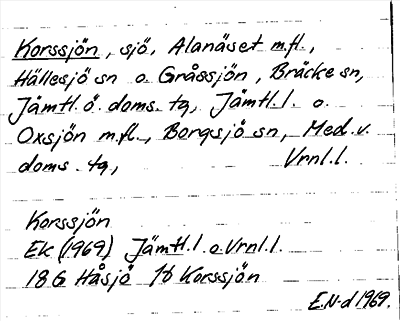 Korssjön, sjö, Alanäset m.fl.,
Hällesjö sn o. Gråssjön, Bräcke sn,
Jämtl. ö. doms. tg, Jämtl. l. o.
Oxsjön m.fl., Borgsjö sn, Med. v.
doms. tg, Vrnl. l.
Korssjön
Ek (1969) Jämtl. l. o. Vrnl. l.
18G Håsjö 7b Korssjön
E.N-d 1969.